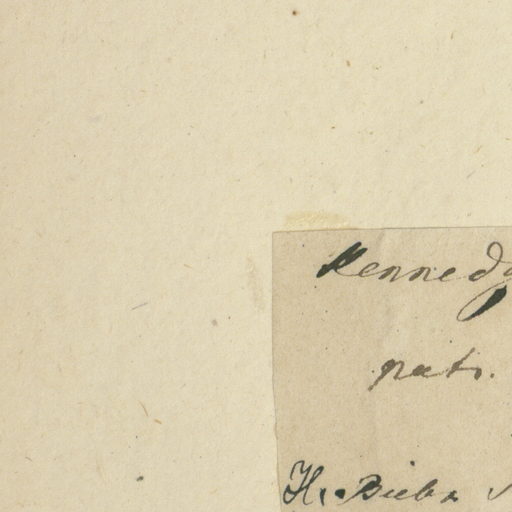 Kennedy
patr.
H. Bieb.